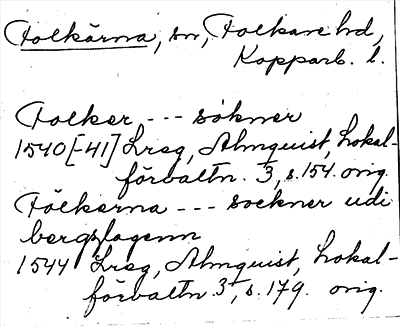 Folkärna, sn, Folkare hd,
Kopparb. l.
Folker --- sokner
1540[-41] Lreg, Almquist, Lokal-
förvaltn. 3, s. 154. orig.
Fölkerna --- sockner udi
bergslagenn
1544 Lreg, Almquist, Lokal-
förvaltn 3, s. 179. orig.